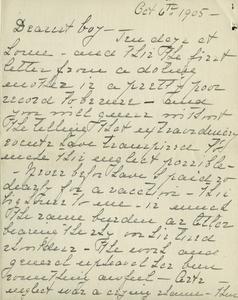 Oct 6th 1905 -
Dearest boy - Ten days at
home - and this the first
letter from a doting
mother is a pretty poor
record to be sure - and
you will guess without
the telling that extraordinary
events have transpired to
make this neglect possible -
- Never before have I paid so
dearly for a vacation - this
is
the same burden as other
tired
shoulders - The work and
general upset has been
something awful -
neglect was a crying shame -